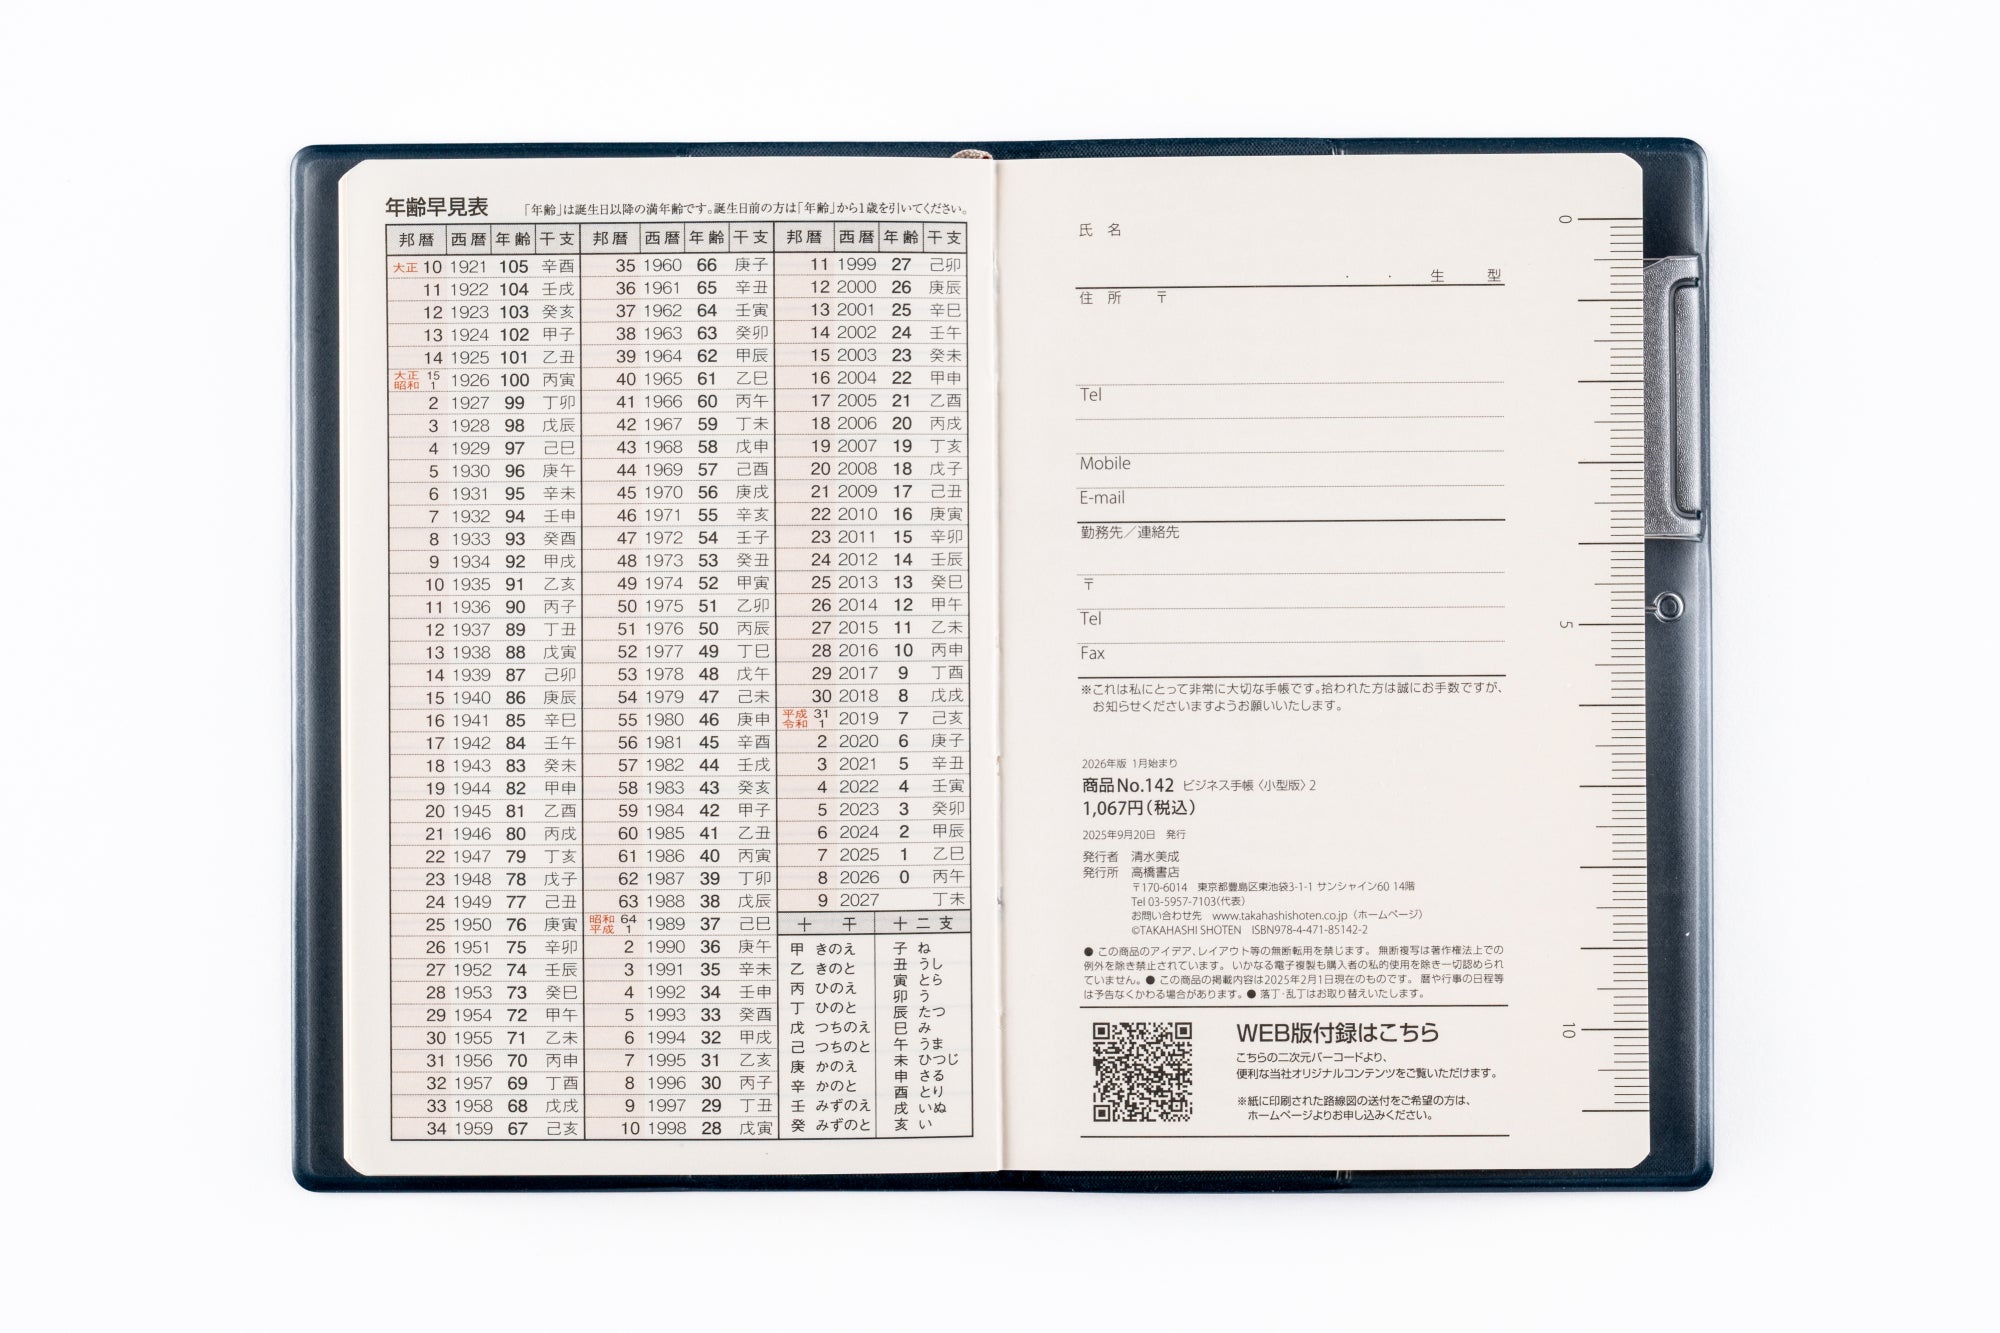 年齢早見表 「年齢」は誕生日以降の満年齢です。誕生日前の方は「年齢」から1歳を引いてください。
邦暦 西暦 年齢 干支 邦暦 西暦 年齢 干支 邦暦 西暦 年齢 干支
大正 10 1921 105 辛酉 35 1960 66 庚子 11 1999 27 己卯
11 1922 104 壬戌 36 1961 65 辛丑 12 2000 26 庚辰
12 1923 103 癸亥 37 1962 64 壬寅 13 2001 25 辛巳
13 1924 102 甲子 38 1963 63 癸卯 14 2002 24 壬午
14 1925 101 乙丑 39 1964 62 甲辰 15 2003 23 癸未
大正 15 昭和 1 1926 100 丙寅 40 1965 61 乙巳 16 2004 22 甲申
2 1927 99 丁卯 41 1966 60 丙午 17 2005 21 乙酉
3 1928 98 戊辰 42 1967 59 丁未 18 2006 20 丙戌
4 1929 97 己巳 43 1968 58 戊申 19 2007 19 丁亥
5 1930 96 庚午 44 1969 57 己酉 20 2008 18 戊子
6 1931 95 辛未 45 1970 56 庚戌 21 2009 17 己丑
7 1932 94 壬申 46 1971 55 辛亥 22 2010 16 庚寅
8 1933 93 癸酉 47 1972 54 壬子 23 2011 15 辛卯
9 1934 92 甲戌 48 1973 53 癸丑 24 2012 14 壬辰
10 1935 91 乙亥 49 1974 52 甲寅 25 2013 13 癸巳
11 1936 90 丙子 50 1975 51 乙卯 26 2014 12 甲午
12 1937 89 丁丑 51 1976 50 丙辰 27 2015 11 乙未
13 1938 88 戊寅 52 1977 49 丁巳 28 2016 10 丙申
14 1939 87 己卯 53 1978 48 戊午 29 2017 9 丁酉
15 1940 86 庚辰 54 1979 47 己未 30 2018 8 戊戌
16 1941 85 辛巳 55 1980 46 庚申 平成 31 令和 1 2019 7 己亥
17 1942 84 壬午 56 1981 45 辛酉 2 2020 6 庚子
18 1943 83 癸未 57 1982 44 壬戌 3 2021 5 辛丑
19 1944 82 甲申 58 1983 43 癸亥 4 2022 4 壬寅
20 1945 81 乙酉 59 1984 42 甲子 5 2023 3 癸卯
21 1946 80 丙戌 60 1985 41 乙丑 6 2024 2 甲辰
22 1947 79 丁亥 61 1986 40 丙寅 7 2025 1 乙巳
23 1948 78 戊子 62 1987 39 丁卯 8 2026 0 丙午
24 1949 77 己丑 63 1988 38 戊辰 9 2027 丁未
25 1950 76 庚寅 昭和 64 平成 1 1989 37 己巳
26 1951 75 辛卯 2 1990 36 庚午
27 1952 74 壬辰 3 1991 35 辛未
28 1953 73 癸巳 4 1992 34 壬申
29 1954 72 甲午 5 1993 33 癸酉
30 1955 71 乙未 6 1994 32 甲戌
31 1956 70 丙申 7 1995 31 乙亥
32 1957 69 丁酉 8 1996 30 丙子
33 1958 68 戊戌 9 1997 29 丁丑
34 1959 67 己亥 10 1998 28 戊寅
十干
甲 きのえ
乙 きのと
丙 ひのえ
丁 ひのと
戊 つちのえ
己 つちのと
庚 かのえ
辛 かのと
壬 みずのえ
癸 みずのと
十二支
子 ね
丑 うし
寅 とら
卯 う
辰 たつ
巳 み
午 うま
未 ひつじ
申 さる
酉 とり
戌 いぬ
亥 い
氏名
・ ・ 生 型
住所 〒
Tel
Mobile
E-mail
勤務先／連絡先
〒
Tel
Fax
※これは私にとって非常に大切な手帳です。拾われた方は誠にお手数ですが、
お知らせくださいますようお願いいたします。
2026年版 1月始まり
商品No.142 ビジネス手帳〈小型版〉2
1,067円(税込)
2025年9月20日 発行
発行者 清水美成
発行所 高橋書店
〒170-6014 東京都豊島区東池袋3-1-1 サンシャイン60 14階
Tel 03-5957-7103(代表)
お問い合わせ先 www.takahashishoten.co.jp（ホームページ）
©TAKAHASHI SHOTEN ISBN978-4-471-85142-2
● この商品のアイデア、レイアウト等の無断転用を禁じます。 無断複写は著作権法上での
例外を除き禁止されています。 いかなる電子複製も購入者の私的使用を除き一切認められ
ていません。● この商品の掲載内容は2025年2月1日現在のものです。 暦や行事の日程等
は予告なくかわる場合があります。● 落丁・乱丁はお取り替えいたします。
WEB版付録はこちら
こちらの二次元バーコードより、
便利な当社オリジナルコンテンツをご覧いただけます。
※紙に印刷された路線図の送付をご希望の方は、
ホームページよりお申し込みください。
0
5
10